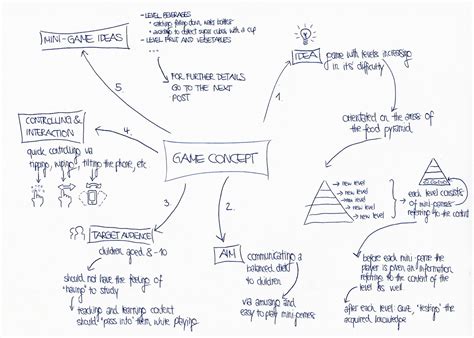 MINI-GAME IDEAS
- LEVEL BEVERAGES
* catching falling down, water bottles
* to detect sugar cubes with a cup
- LEVEL FRUIT AND VEGETABLES
...
FOR FURTHER DETAILS
GO TO THE NEXT
POST
5.
1.
IDEA
game with levels increasing
in it's difficulty
orientated on the areas of
the food pyramid
new level
new level
new level
new level
new level
each level consists
of mini-games
referring to the content
before each mini-game the
player is given an information
referring to the content of the
level as well
after each level: quiz, 'testing' the
acquired knowledge
CONTROLLING &
INTERACTION
4.
quick controlling via
tipping, wiping, tilting the phone, etc
GAME CONCEPT
3.
2.
TARGET AUDIENCE
children aged 8 - 10
should not have the feeling of
'having' to study
teaching and learning content
should 'pass into' them while playing
AIM
communicating a
balanced diet
to children
via amusing and
easy to play mini-games